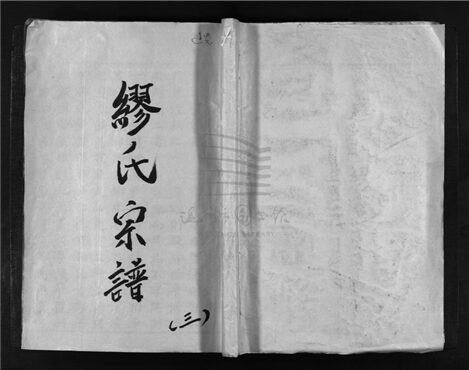 繆氏宗譜
(三)